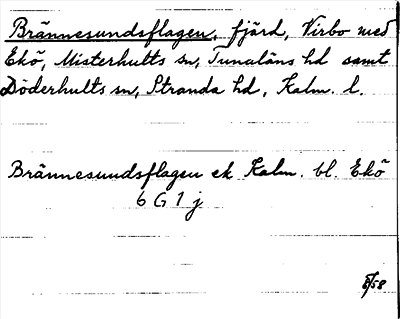 Brännesundsflagen, fjärd, Virbo med
Ekö, Misterhults sn, Tunaläns hd samt
Döderhults sn, Stranda hd, Kalm. l.
Brännesundsflagen ek Kalm. bl. Ekö
6 G 1 j
8/58